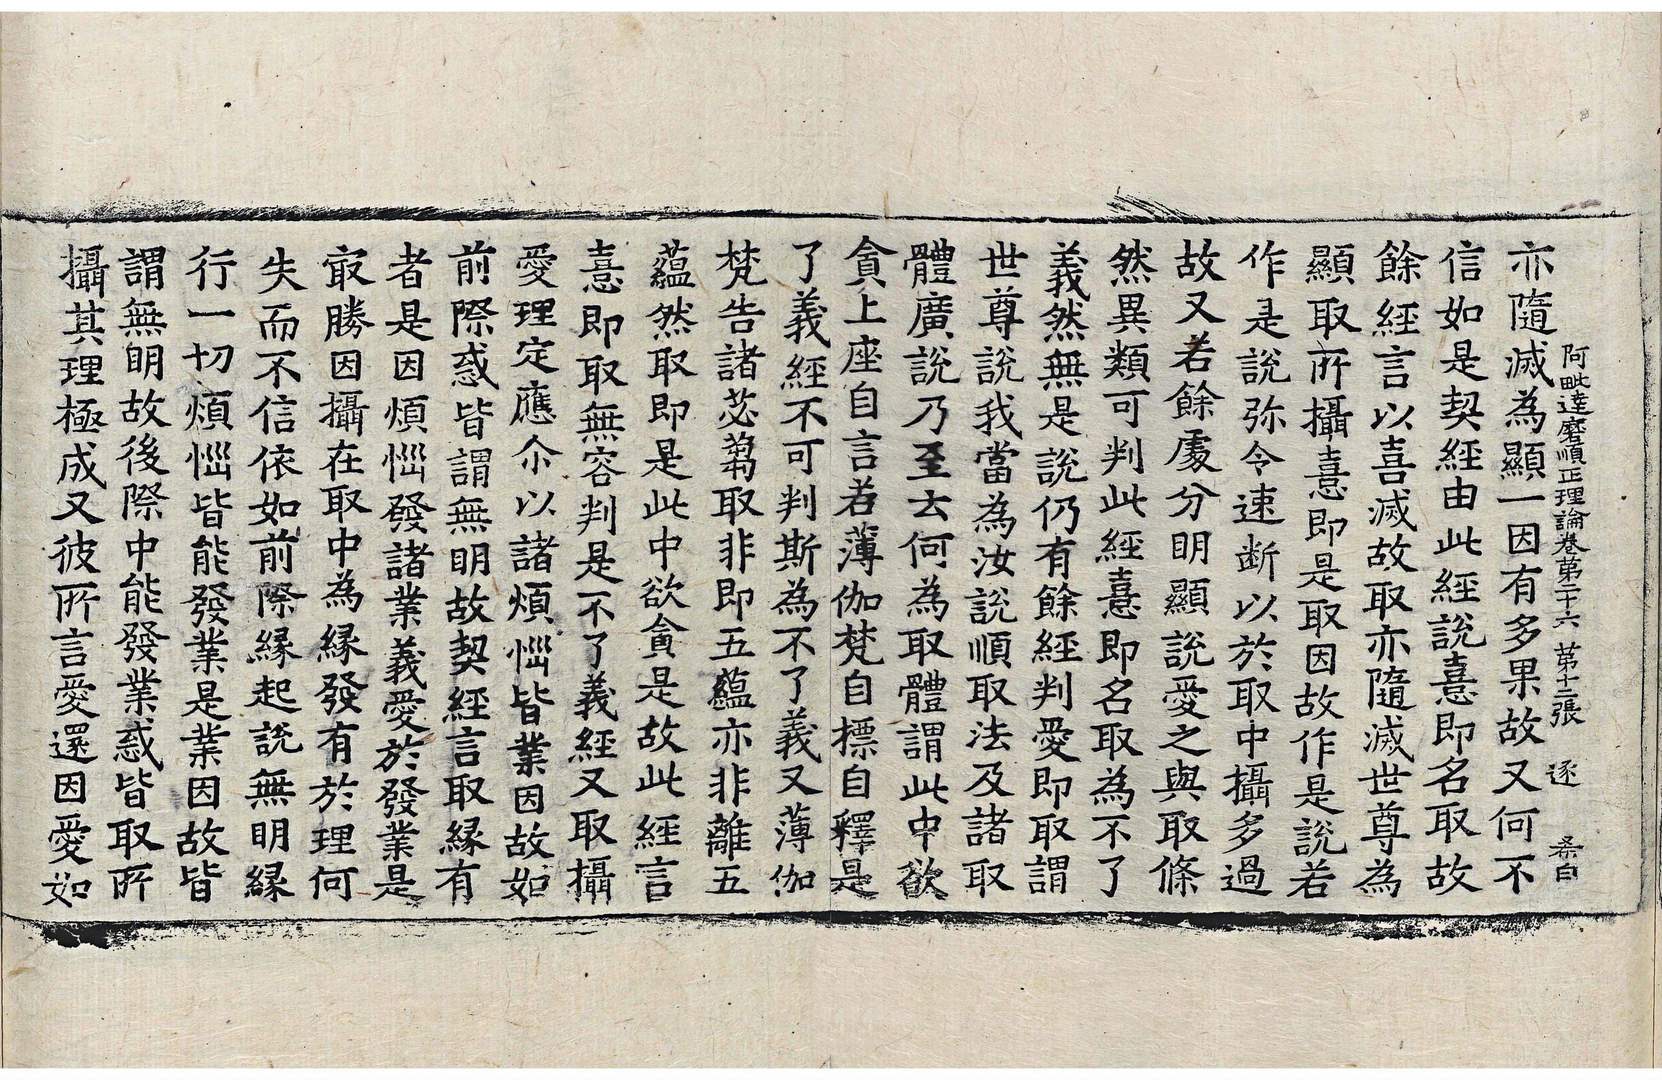 阿毗達磨順正理論卷第二十六 第十二張 逐 桼白
亦隨滅為顯一因有多果故又何不
信如是契經由此經說憙即名取故
餘經言以喜滅故取亦隨滅世尊為
顯取所攝憙即是取因故作是說若
作是說弥令速斷以於取中攝多過
故又若餘處分明顯說愛之與取條
然異類可判此經憙即名取為不了
義然無是說仍有餘經判愛即取謂
世尊說我當為汝說順取法及諸取
體廣說乃至去何為取體謂此中欲
貪上座自言若薄伽梵自標自釋是
了義經不可判斯為不了義又薄伽
梵告諸苾蒭取非即五蘊亦非離五
蘊然取即是此中欲貪是故此經言
憙即取無容判是不了義經又取攝
愛理定應尒以諸煩惱皆業因故如
前際惑皆謂無明故契經言取緣有
者是因煩惱發諸業義愛於發業是
㝡勝因攝在取中為緣發有於理何
失而不信依如前際緣起說無明緣
行一切煩惱皆能發業是業因故皆
謂無明故後際中能發業惑皆取所
攝其理極成又彼所言愛還因愛如